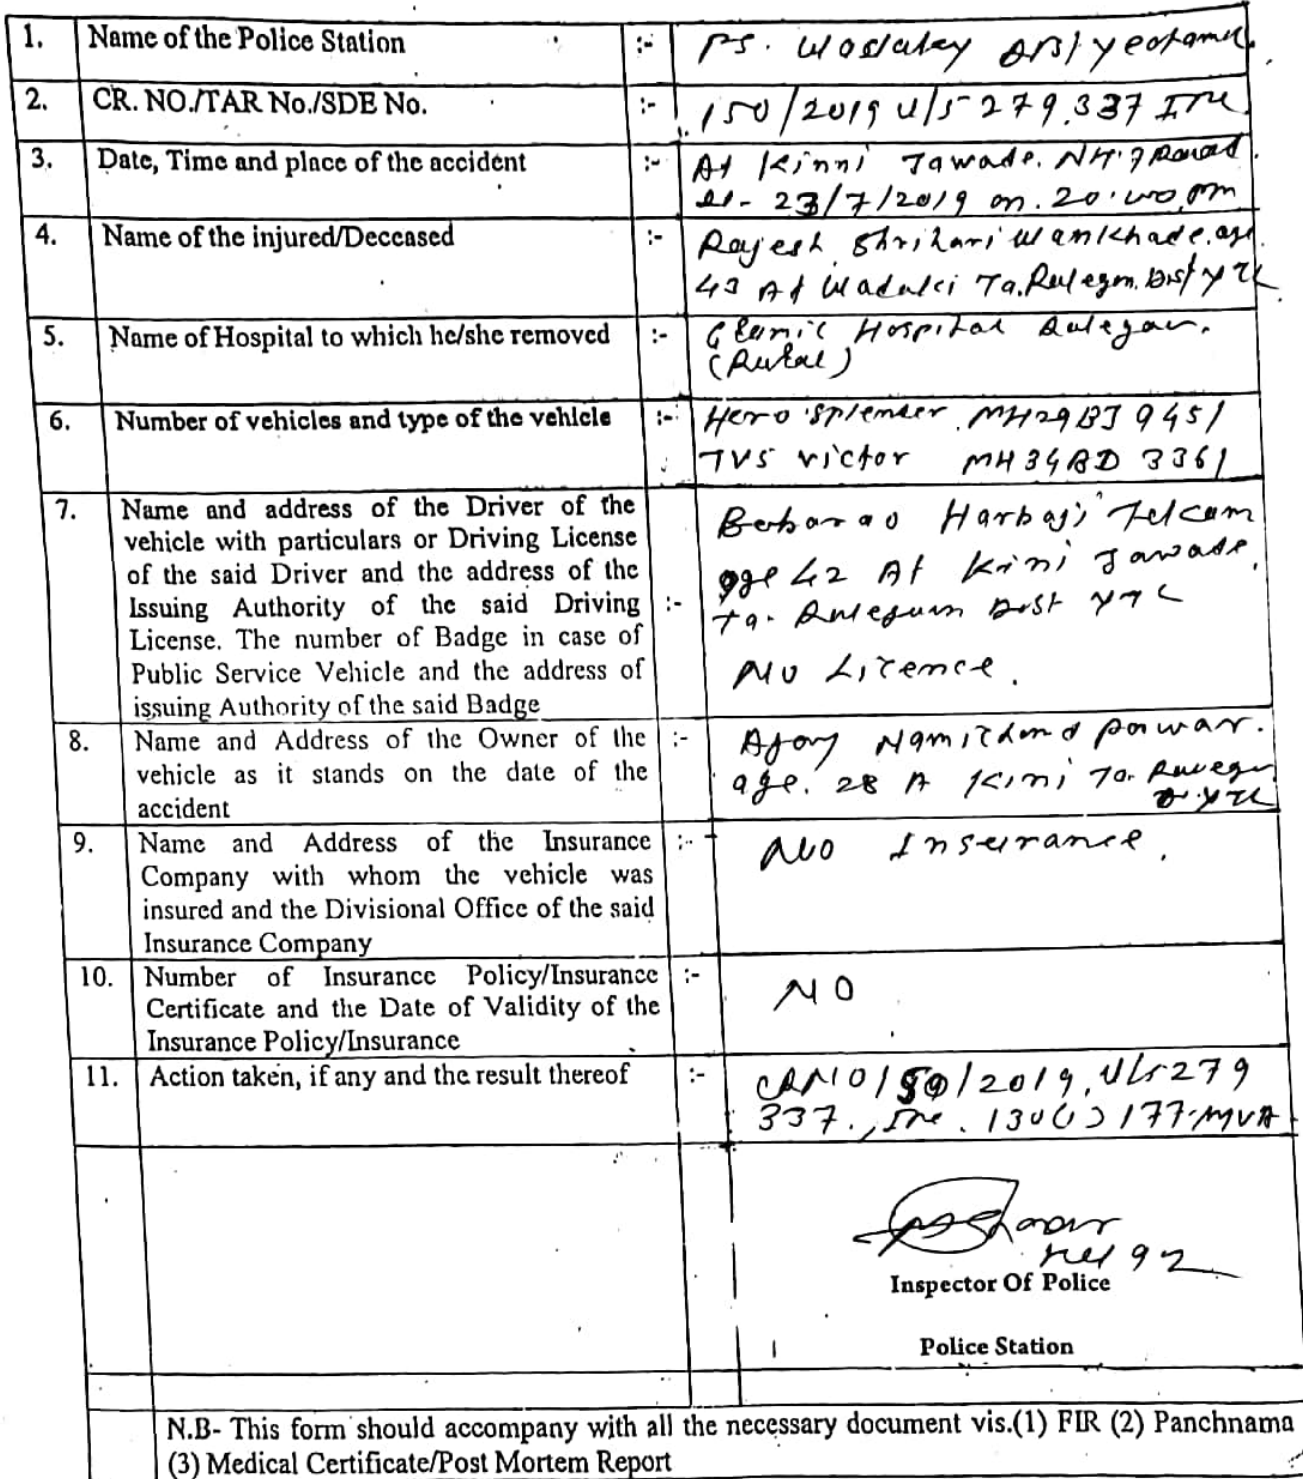 1. Name of the Police Station :- PS. Wadakey Dist yeotamal.
2. CR. NO./TAR No./SDE No. :- 150/2019 U/S 279.337 IPC
3. Date, Time and place of the accident :- At Kinni Jawade. NH.7 Road
23/7/2019 on. 20.00 pm
4. Name of the injured/Deceased :- Rajesh Shrihari Wankhade. age.
43 At Wadaki Ta. Ralegon. Dist YTL
5. Name of Hospital to which he/she removed :- Hospital Ralegaon.
(Rural)
6. Number of vehicles and type of the vehicle :- Hero Splender. MH29BJ 9451
TVS Victor MH34BD 3361
7. Name and address of the Driver of the
vehicle with particulars or Driving License
of the said Driver and the address of the
Issuing Authority of the said Driving
License. The number of Badge in case of
Public Service Vehicle and the address of
issuing Authority of the said Badge
:- Babarao Harbaji Tekam
age 42 At Kini Jawade,
Ta. Ralegaon Dist YTL
No Licence.
8. Name and Address of the Owner of the
vehicle as it stands on the date of the
accident
:- Ajay Namichand Pawar.
age. 28 A Kini Ta. Ralegaon
D. YTL
9. Name and Address of the Insurance
Company with whom the vehicle was
insured and the Divisional Office of the said
Insurance Company
:- No Insurance.
10. Number of Insurance Policy/Insurance
Certificate and the Date of Validity of the
Insurance Policy/Insurance
:- NO
11. Action taken, if any and the result thereof :- CR NO 150/2019, U/S 279
337., IPC. 130(1) 177. MVA
92
Inspector Of Police
Police Station
N.B- This form should accompany with all the necessary document vis.(1) FIR (2) Panchnama
(3) Medical Certificate/Post Mortem Report